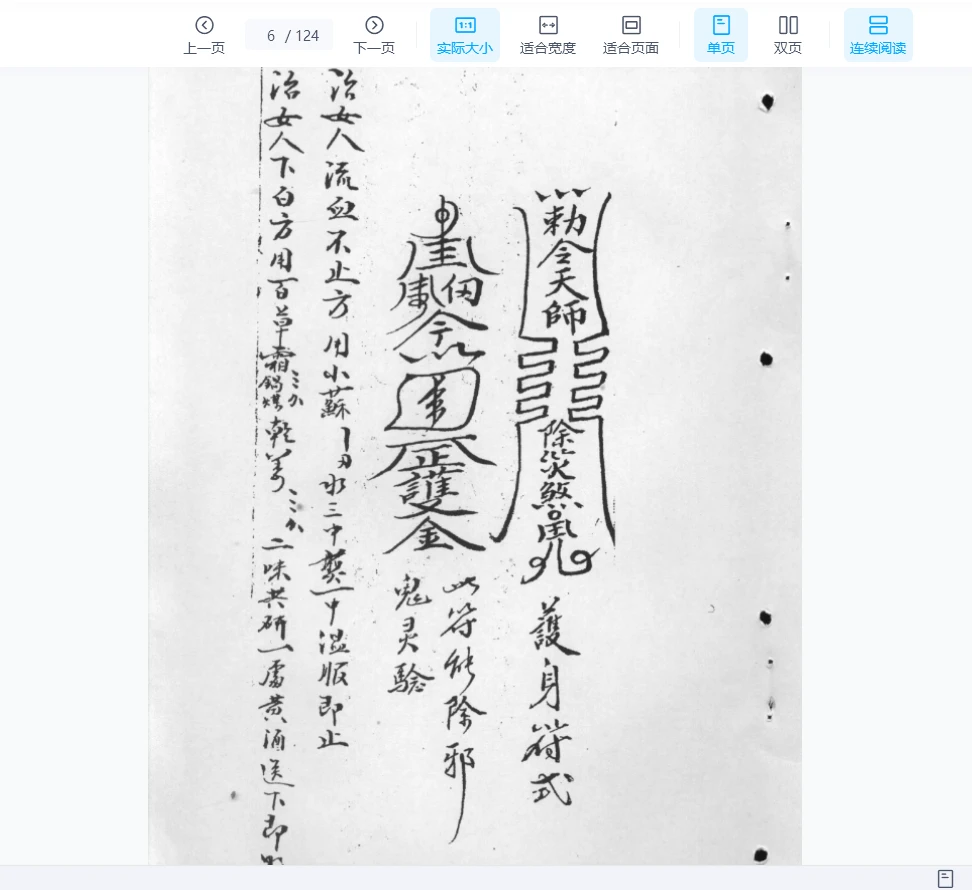 上一页
6 / 124
下一页
1:1
实际大小
适合宽度
适合页面
单页
双页
连续阅读
勅令天師
除災煞鬼
護身符式
護
金
此符能除邪
鬼灵驗
治女人流血不止方 用小蘇 水三中 一中温服即止
治女人下白方用百草霜 鍋煤 三分 乾姜 三分 二味共研一處黄酒送下即